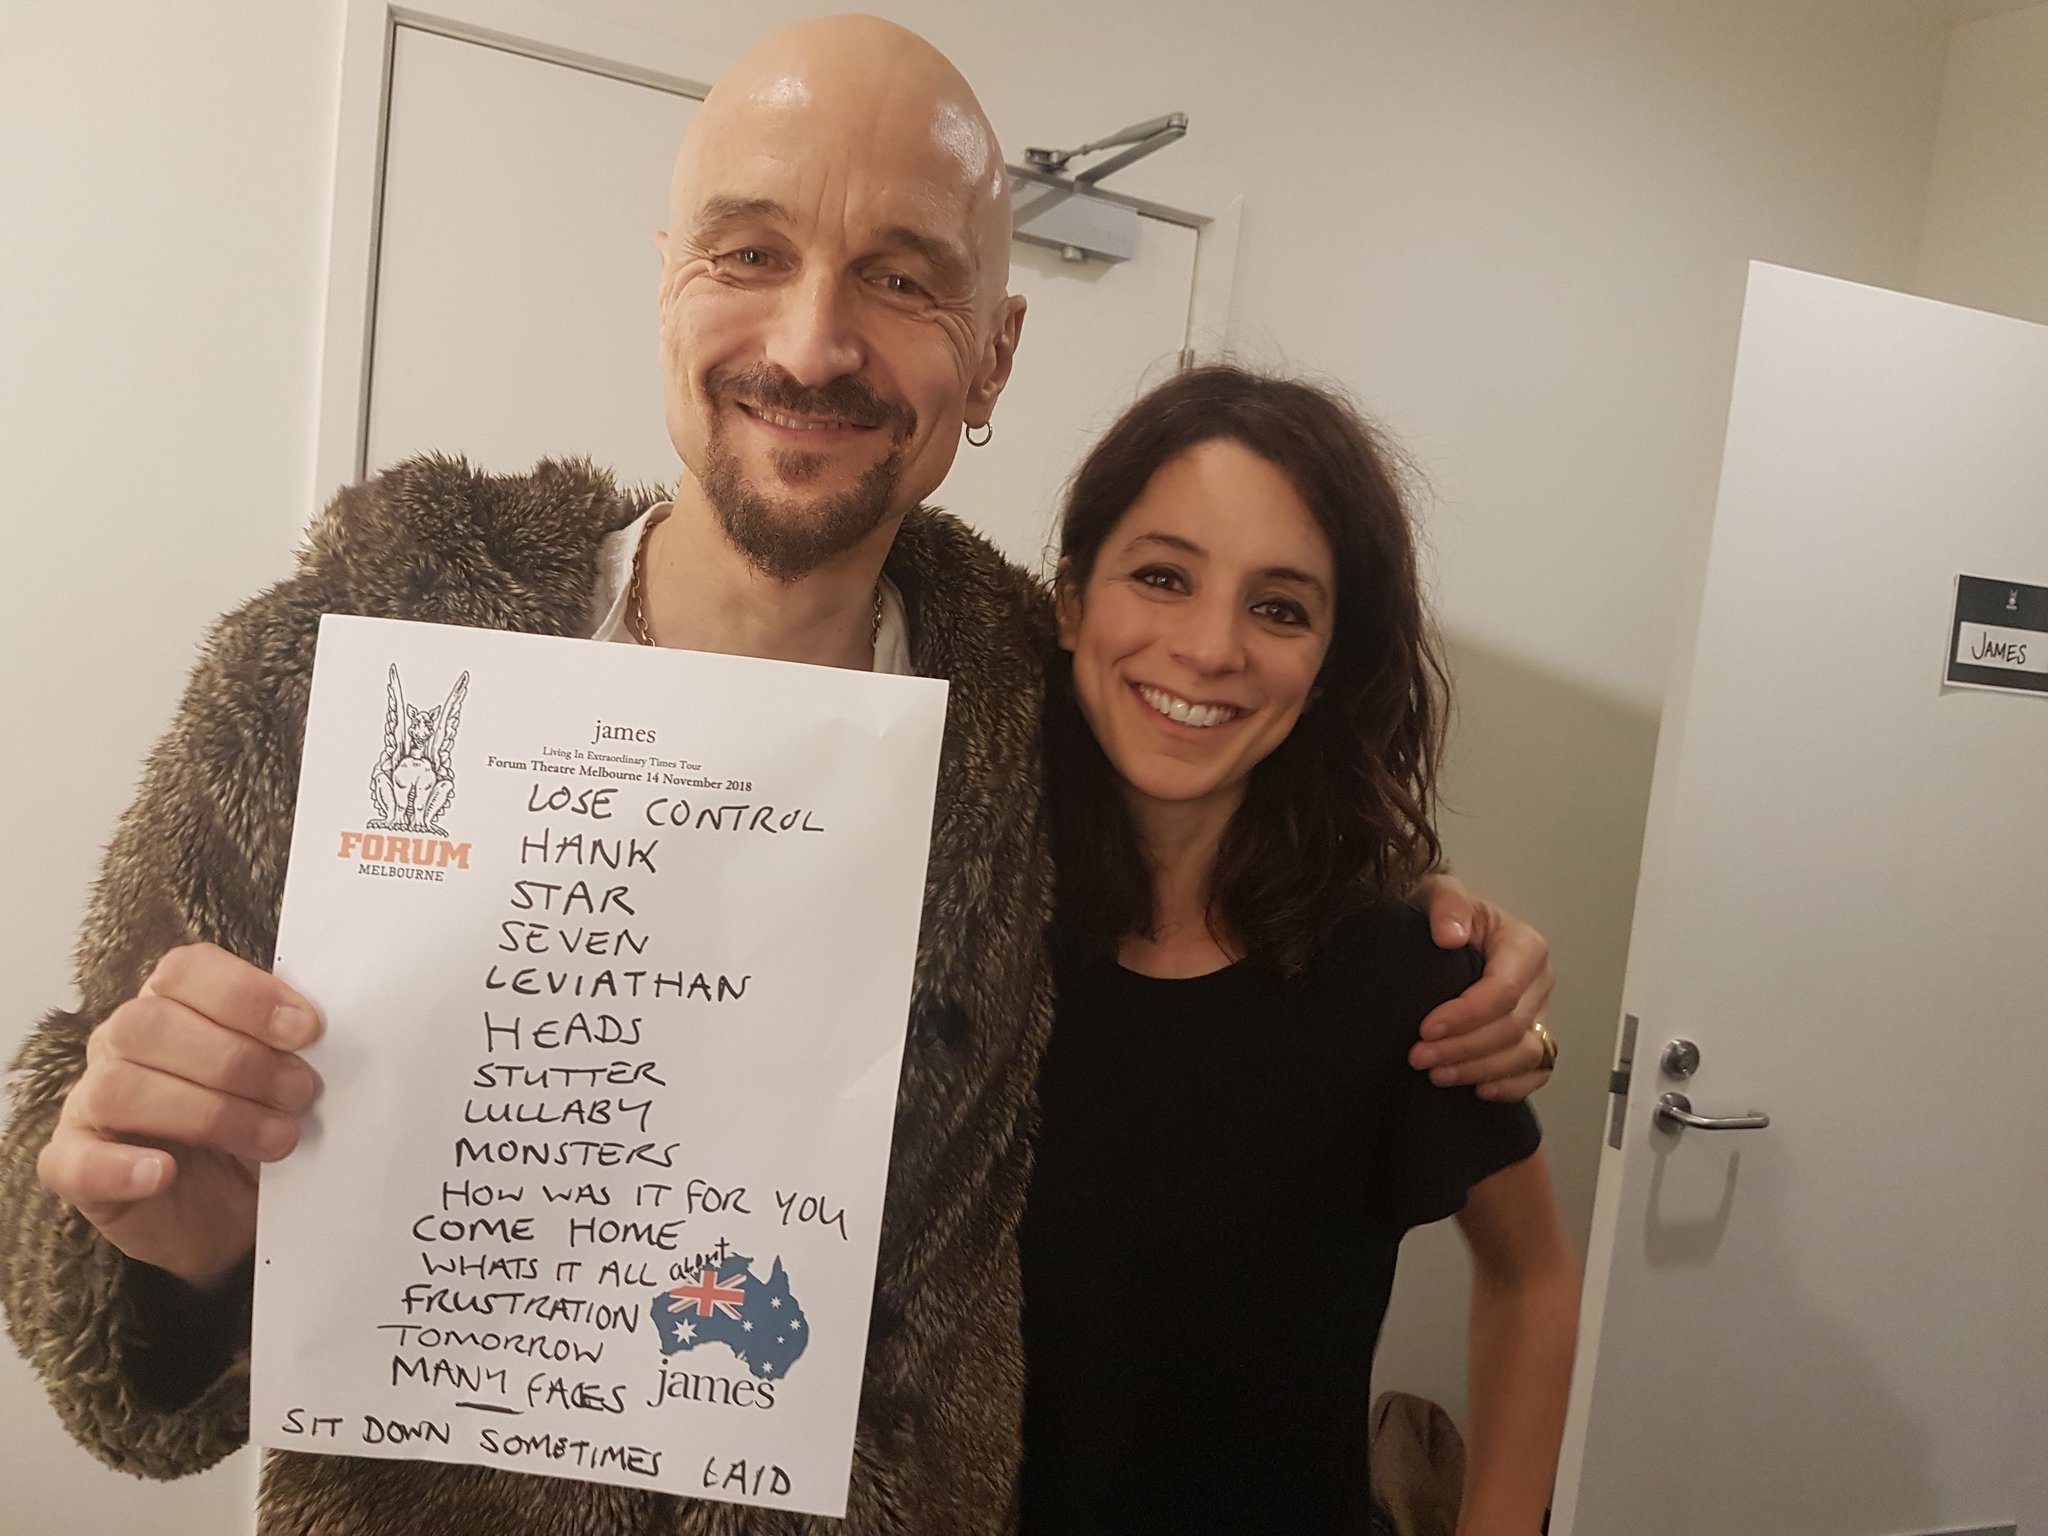 james
Living In Extraordinary Times Tour
Forum Theatre Melbourne 14 November 2018
FORUM
MELBOURNE
LOSE CONTROL
HANK
STAR
SEVEN
LEVIATHAN
HEADS
STUTTER
LULLABY
MONSTERS
HOW WAS IT FOR YOU
COME HOME
WHATS IT ALL about
FRUSTRATION
TOMORROW
MANY FACES
james
SIT DOWN SOMETIMES LAID
JAMES